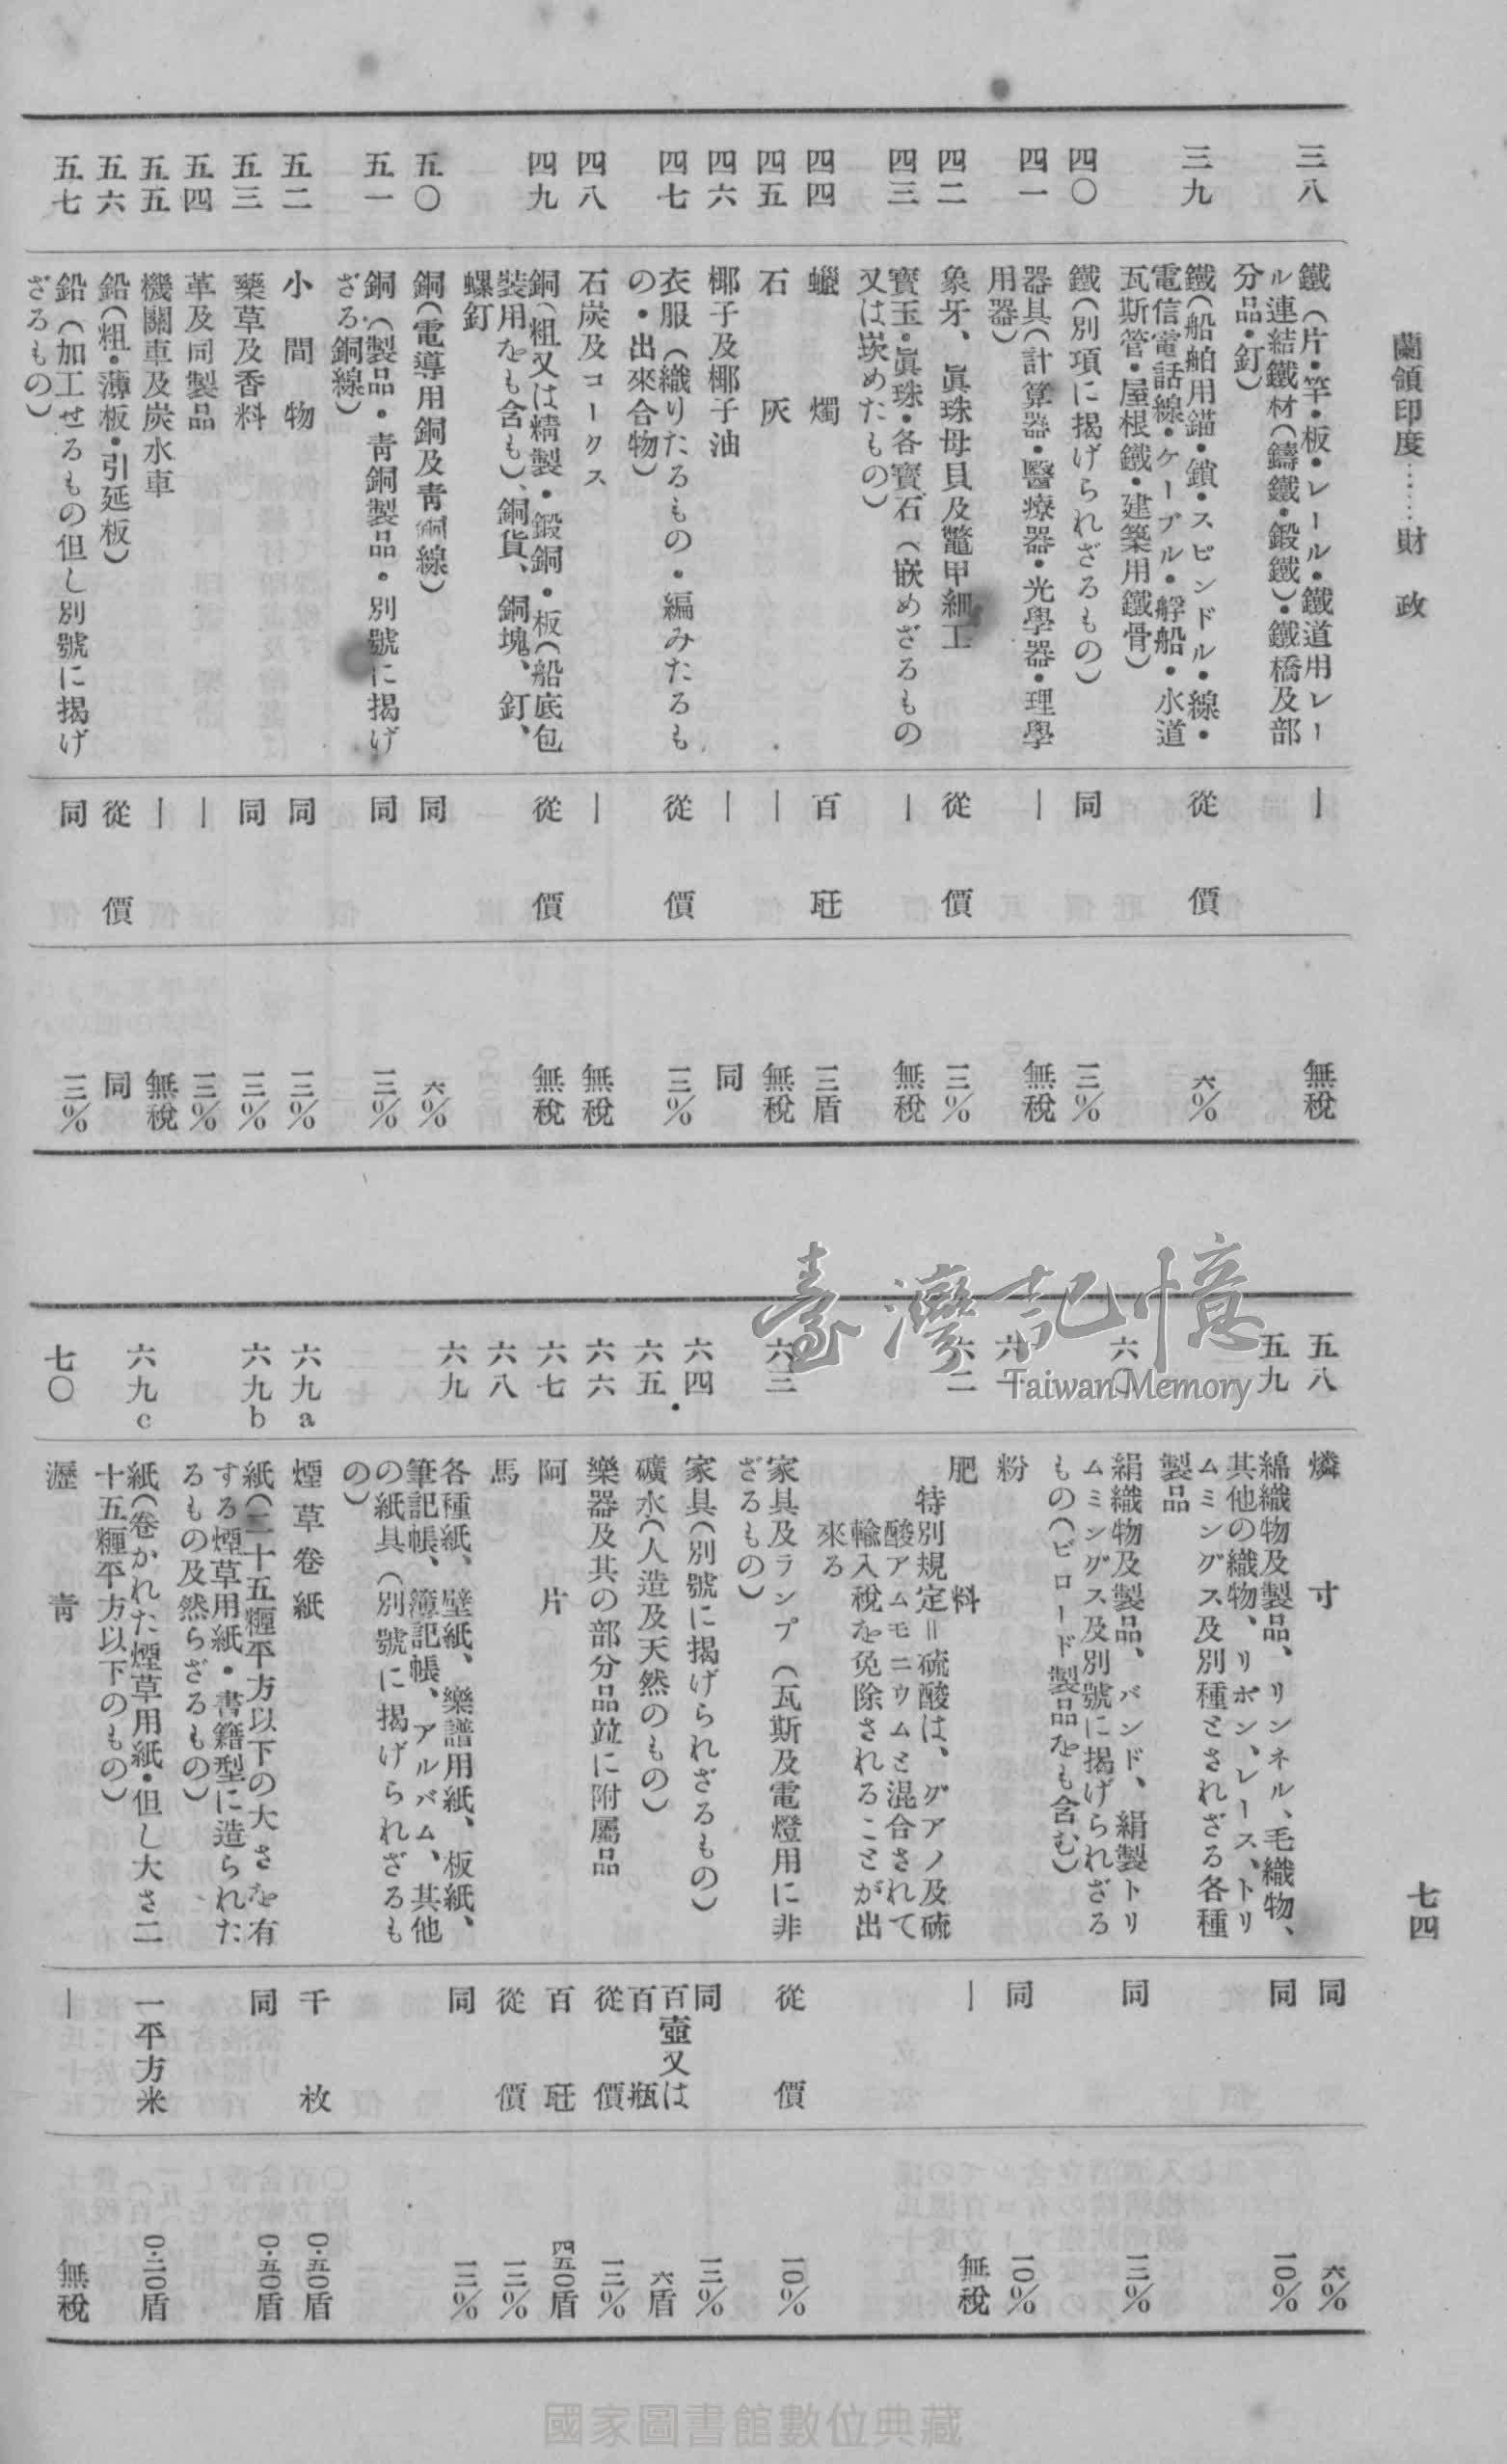 蘭領印度……財政
七四
三八
鐵（片・竿・板・レール・鐵道用レー
ル連結鐵材（鑄鐵・鍛鐵）・鐵橋及部
分品・釘）
―
無稅
三九
鐵（船舶用錨・鎖・スピンドル・線・
電信電話線・ケーブル・艀船・水道
瓦斯管・屋根鐵・建築用鐵骨）
從價
六%
四〇
鐵（別項に揭げられざるもの）
同
四一
器具（計算器・醫療器・光學器・理學
用器）
―
無稅
四二
象牙、眞珠母貝及鼈甲細工
從價
四三
寳玉・眞珠・各寳石（嵌めざるもの
又は嵌めたもの）
―
無稅
四四
蠟燭
百瓩
三盾
四五
石灰
―
無稅
四六
椰子及椰子油
―
同
四七
衣服（織りたるもの・編みたるも
の・出來合物）
從價
四八
石炭及コークス
―
無稅
四九
銅（粗又は精製・鍛銅・板（船底包
裝用をも含も）、銅貨、銅塊、釘、
螺釘
從價
無稅
五〇
銅（電導用銅及靑銅線）
同
六%
五一
銅（製品・靑銅製品・別號に揭げ
ざる銅線）
同
五二
小間物
同
五三
藥草及香料
同
五四
革及同製品
―
五五
機關車及炭水車
―
無稅
五六
鉛（粗・薄板・引延板）
從價
同
五七
鉛（加工せるもの但し別號に揭げ
ざるもの）
同
五八
燐寸
同
六%
五九
綿織物及製品、リンネル、毛織物、
其他の織物、リボン、レース、トリ
ムミングス及別種とされざる各種
製品
同
一〇%
六
絹織物及製品、バンド、絹製トリ
ムミングス及別號に揭げられざる
もの（ビロード製品をも含む）
同
粉
同
一〇%
肥料
特別規定＝硫酸は、グアノ及硫
酸アムモニウムと混合されて
輸入稅を免除されることが出
來る
―
無稅
六三
家具及ランプ（瓦斯及電燈用に非
ざるもの）
從價
一〇%
六四
家具（別號に揭げられざるもの）
同
六五
礦水（人造及天然のもの）
百壺又は
百瓶
六盾
六六
樂器及其の部分品竝に附屬品
從價
六七
阿片
百瓩
四五〇盾
六八
馬
從價
六九
各種紙、壁紙、樂譜用紙、板紙、
筆記帳、簿記帳、アルバム、其他
の紙具（別號に揭げられざるも
の）
同
六九a
煙草卷紙
千枚
〇・五〇盾
六九b
紙（二十五糎平方以下の大さを有
する煙草用紙・書籍型に造られた
るもの及然らざるもの）
同
〇・五〇盾
六九c
紙（卷かれた煙草用紙・但し大さ二
十五糎平方以下のもの）
一平方米
〇・二〇盾
七〇
瀝靑
―
無稅
臺灣記憶
Taiwan Memory
國家圖書館數位典藏